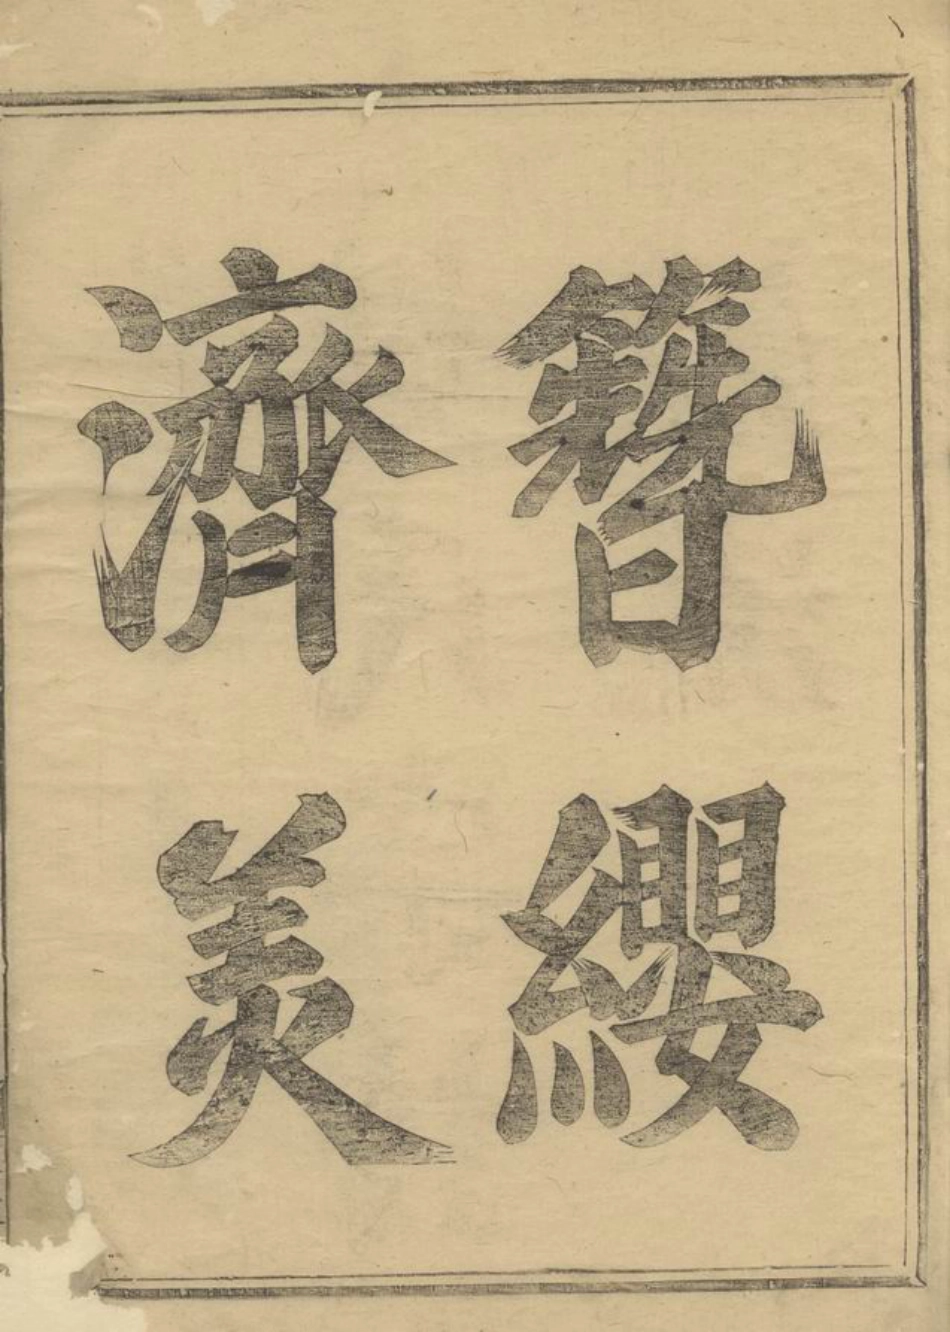 簪纓
濟美